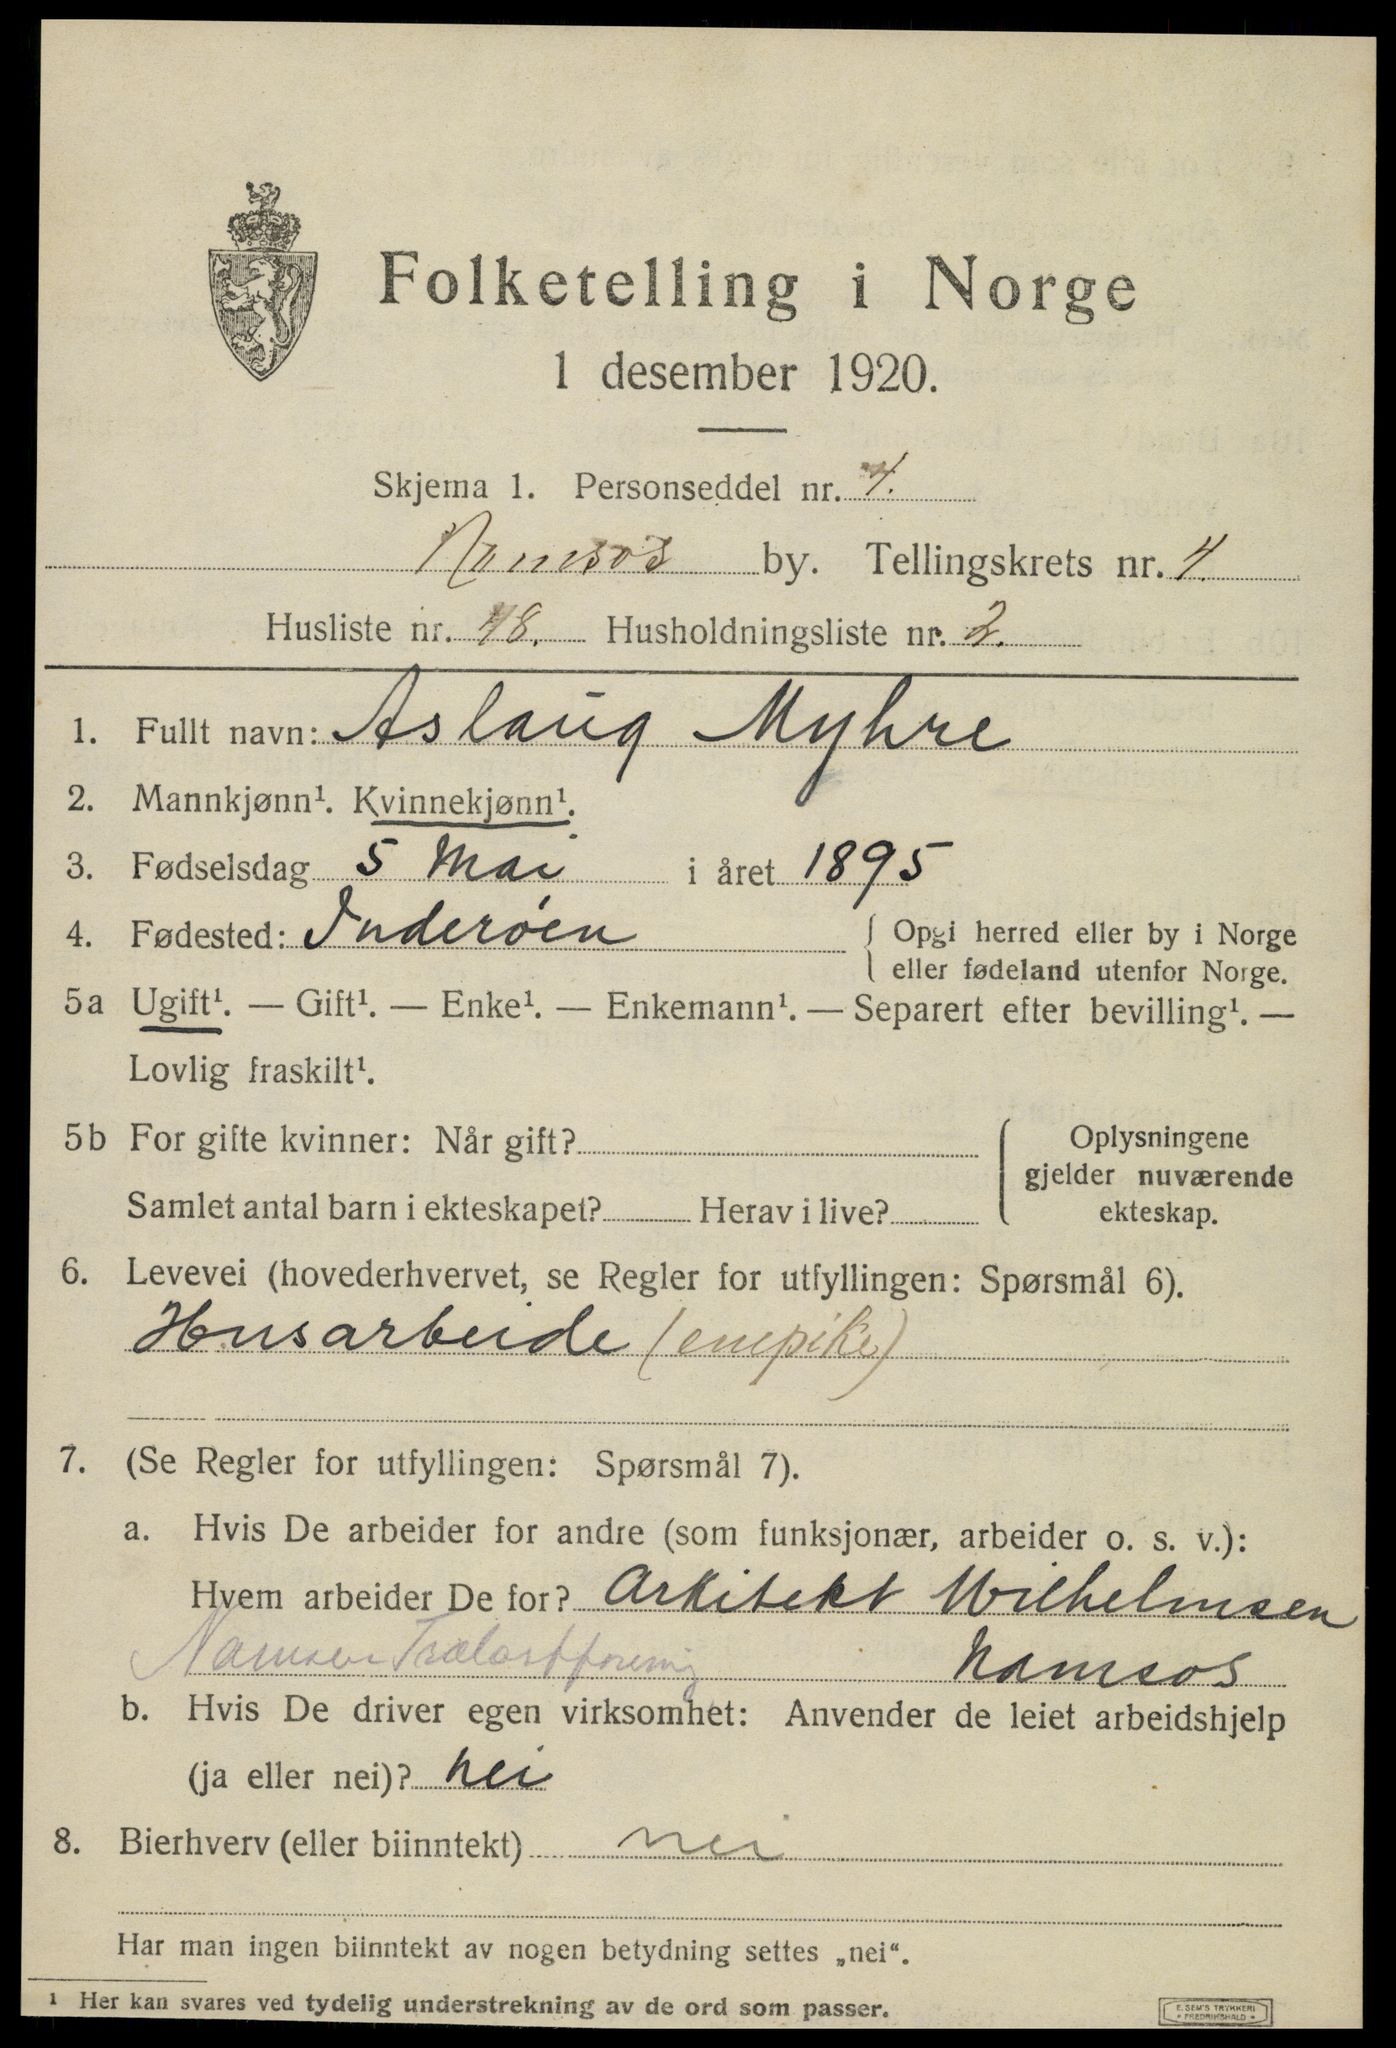 Folketelling i Norge
1 desember 1920.
Skjema 1. Personseddel nr. 4.
Namsos by. Tellingskrets nr. 4.
Husliste nr. 48. Husholdningsliste nr. 2.
1. Fullt navn: Aslaug Myhre
2. Mannkjønn¹. Kvinnekjønn¹.
3. Fødselsdag 5 Mai i året 1895
4. Fødested: Inderöen { Opgi herred eller by i Norge
eller fødeland utenfor Norge.
5a Ugift¹. — Gift¹. — Enke¹. — Enkemann¹. — Separert efter bevilling¹. —
Lovlig fraskilt¹.
5b For gifte kvinner: Når gift? { Oplysningene
gjelder nuværende
Samlet antal barn i ekteskapet? Herav i live? ekteskap.
6. Levevei (hovederhvervet, se Regler for utfyllingen: Spørsmål 6).
Husarbeide (enepike)
7. (Se Regler for utfyllingen: Spørsmål 7).
a. Hvis De arbeider for andre (som funksjonær, arbeider o. s. v.):
Hvem arbeider De for? Arkitekt Wilhelmsen
Trælastforening Namsos
b. Hvis De driver egen virksomhet: Anvender de leiet arbeidshjelp
(ja eller nei)? nei
8. Bierhverv (eller biinntekt) nei
Har man ingen biinntekt av nogen betydning settes „nei“.
¹ Her kan svares ved tydelig understrekning av de ord som passer.
E. SEM'S TRYKKERI
* FREDRIKSHALD *